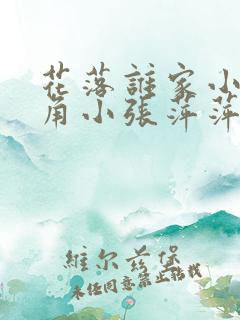 花落誰家小
角小張萍萍
維尔兹堡
未经同意禁止转载